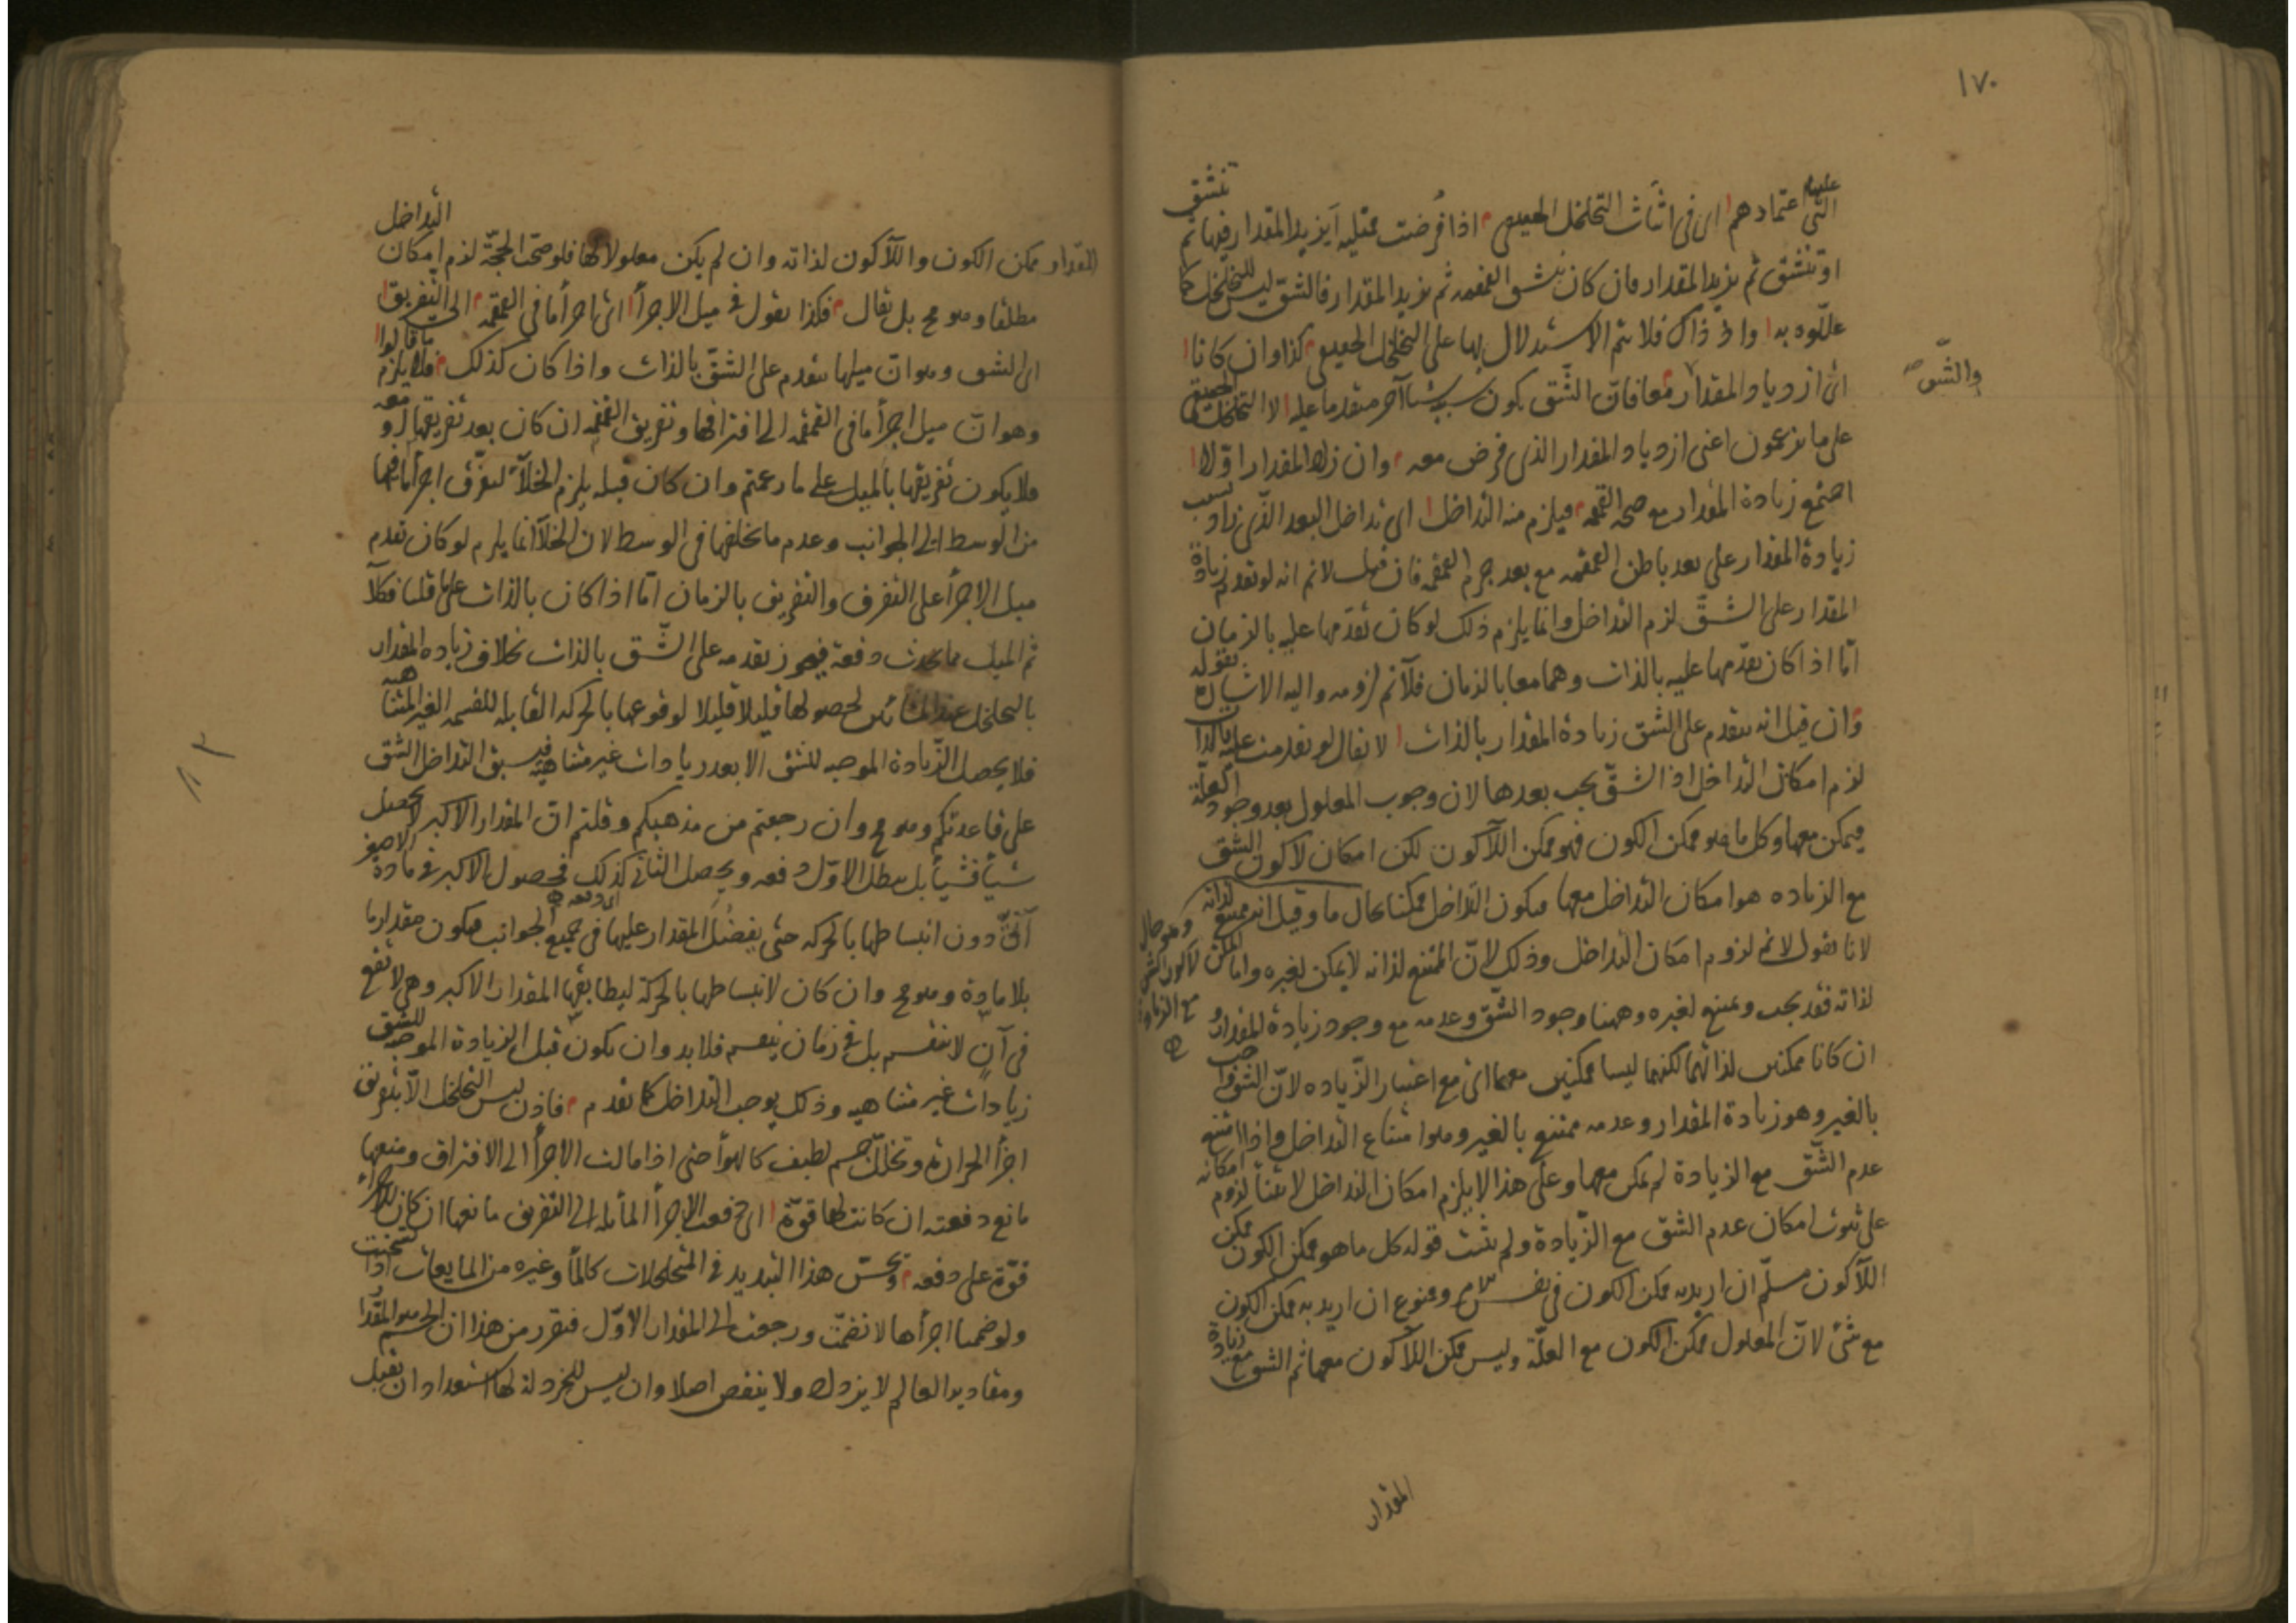 ١٧٠
التى عليها اعتمادهم اى فى اثبات التخلخل الحقيقى اذا فرضت ممتلية ايزيد المقدار فيها ثم تنشق
او تنشق ثم يزيد المقدار فان كان تنشق القمقمة ثم يزيد المقدار فالشق ليس للتخلخل كما
علّلوه به واذ ذاك فلا يتم الاستدلال بها على التخلخل الحقيقى كذا وان كانا
اى ازدياد المقدار والشق معا فانّ الشّق يكون بسبب شيئا آخر متقدما عليه لا التخلخل الحقيقى
على ما يزعمون اعنى ازدياد المقدار الذى فرض معه وان زاد المقدار اوّلا
اجتمع زيادة المقدار مع صحة القمقمة فيلزم منه التداخل اى تداخل البعد الذى زاد بسبب
زيادة المقدار على بعد باطن القمقمة مع بعد جرم القمقمة فان قيل لانم انه لو تقدم زيادة
المقدار على الشّق لزم التداخل وانما يلزم ذلك لو كان تقدّمها عليه بالزمان
امّا اذا كان تقدّمها عليه بالذات وهما معا بالزمان فلا نم لزومه واليه الاشارة بقوله
وان قيل انه يتقدم على الشق زيادة المقدار بالذات لا يقال لو تقدمت عليه بالذات
لزم امكان التداخل اذ الشقّ يجب بعدها لان وجوب المعلول بعد وجود العلّة
فيمكن معها وكل ما هو ممكن الكون فهو ممكن اللاكون لكن امكان لا كون الشق
مع الزياده هو امكان التداخل معها فيكون التداخل ممكنا بحال ما وقيل انه ممتنع لذاته
وهو حال لا كون الشق مع الزيادة
لانا نقول لا نم لزوم امكان التداخل وذلك لانّ الممتنع لذاته لا يمكن لغيره واما الممكن
لذاته فقد يجب ويمتنع لغيره وههنا وجود الشّق وعدمه مع وجود زيادة المقدار و
ان كانا ممكنين لذاتهما لكنهما ليسا ممكنين معها اى مع اعتبار الزّياده لانّ الشق واجب
بالغير وهو زيادة المقدار وعدمه ممتنع بالغير وهو امتناع التداخل واذا امتنع
عدم الشّق مع الزيادة لم يمكن معها وعلى هذا لا يلزم امكان التداخل لابتناء لزوم امكانه
على ثبوت امكان عدم الشق مع الزّيادة ولم يثبت قوله كل ما هو ممكن الكون ممكن
اللاكون مسلّم ان اريد به ممكن الكون فى نفسه وممنوع ان اريد به ممكن الكون
مع شئ لانّ المعلول ممكن الكون مع العلّة وليس ممكن اللاكون معها ثم الشق مع زيادة
المقدار
المقدار ممكن الكون واللاكون لذاته وان لم يكن معلولا لها فلو صحّت الحجّة لزم امكان التداخل
مطلقا وهو مح بل يقال فكذا نقول فى ميل الاجزأ اى اجزأ ما فى القمقمة الى التفريق
اى الشق وهو انّ ميلها يتقدم على الشقّ بالذات واذا كان كذلك فلا يلزم ما قالوا
وهو انّ ميل اجزأ ما فى القمقمه الى افتراقها وتفريق القمقمه ان كان بعد تفريقها او معه
فلا يكون تفريقها بالميل على ما زعمتم وان كان قبله يلزم الخلأ لتفرّق اجزأ ما فيها
من الوسط الى الجوانب وعدم ما يخلفها فى الوسط لان الخلأ انما يلزم لو كان تقدم
ميل الاجزأ على التفرق والتفريق بالزمان امّا اذا كان بالذات على ما قلنا فكلّا
ثم الميل مما يحدث دفعة فيجوز تقدمه على الشّق بالذات بخلاف زياده المقدار
بالتخلخل عند المشائين لحصولها قليلا قليلا لوقوعها بالحركه القابله للقسمه الغير المتناهيه
فلا يحصل الزّيادة الموجبه للشق الا بعد زيادات غير متناهية فيسبق التداخل الشق
على قاعدتكم وهو مح وان رجعتم من مذهبكم وقلتم انّ المقدار الاكبر لا يحصل
شيأ فشيأ بل يبطل الاوّل دفعه ويحصل الثانى كذلك اى دفعة فحصول الاكبر فى مادة الاصغر
آنىّ دون انبساطها بالحركه حتى يفضل المقدار عليها فى جميع الجوانب فيكون مقدار ما
بلا مادة وهو مح وان كان لانبساطها بالحركة ليطابقها المقدار الاكبر وهى لا تقع
فى آن لا ينقسم بل فى زمان ينقسم فلا بد وان يكون قبل الزيادة الموجبه للشق
زيادات غير متناهيه وذلك يوجب التداخل كما تقدم فاذن ليس التخلخل الّا بتفريق
اجزأ الحرارة وتخلّل جسم لطيف كالهوأ حتى اذا مالت الاجزأ الى الافتراق ومنعها
مانع دفعته ان كانت لها قوّة اى دفعت الاجزأ المائله الى التفريق مانعها ان كان للاجزاء
قوّة على دفعه ويحسّ هذا التبديد فى المتخلخلات كالمأ وغيره من المايعات اذا تسخنت
ولو ضممنا اجزأها لانضمّت ورجعت الى المقدار الاوّل فتقرر من هذا ان الجسم هو المقدار
ومقادير العالم لا يزداد ولا ينقص اصلا وان ليس للخردلة لها استعداد ان تقبل